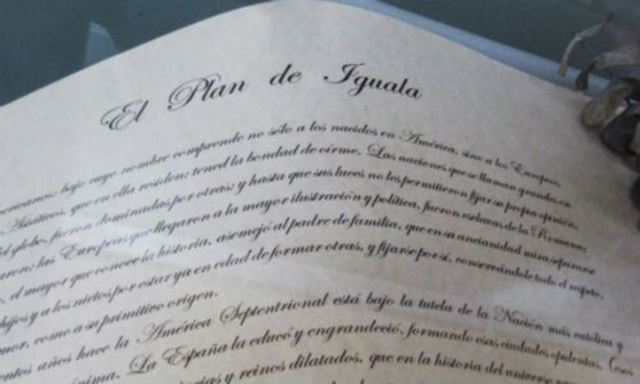 El Plan de Iguala
bajo cuyo nombre comprende no sólo a los nacidos en América, sino a los Europeos,
Asiáticos, que en ella residen: tened la bondad de oírme. Las naciones que se llaman grandes en
del globo, fueron dominadas por otras; y hasta que sus luces no les permitieron fijar su propia opinión,
las Europeas que llegaron a la mayor ilustración y política, fueron esclavas de la Romana;
el mayor que conoce la historia, asemejó al padre de familia, que en su ancianidad mira separarse
hijos y a los nietos por estar ya en edad de formar otras, y fijarse por sí, conservándole todo el respeto,
como a su primitivo origen.
años hace la América Septentrional está bajo la tutela de la Nación más católica y
La España la educó y engrandeció, formando esas ciudades opulentas,
y reinos dilatados, que en la historia del